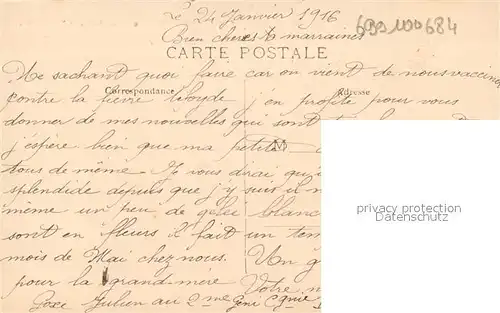 Le 24 Janvier 1916
699100684
Bien chères marraines
CARTE POSTALE
Ne sachant quoi faire car on vient de nous vacciner
Correspondance
Adresse
contre la fièvre j'en profite pour vous
donner de mes nouvelles qui sont
j'espère bien que ma petite
M
tous de même. Je vous dirai qu'i
splendide depuis que j'y suis il n
privacy protection
Datenschutz
même un peu de gelée blanc
sont en fleurs il fait un tem
mois de Mai chez nous. Un g
pour la grand-mère Votre
Julien au 2me Géni Cgnie